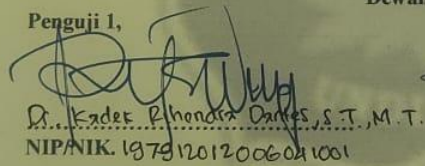 Dewan
Penguji 1,
Dr. Kadek Rihendra Dantes, S.T., M.T.
NIP/NIK. 197912012006041001